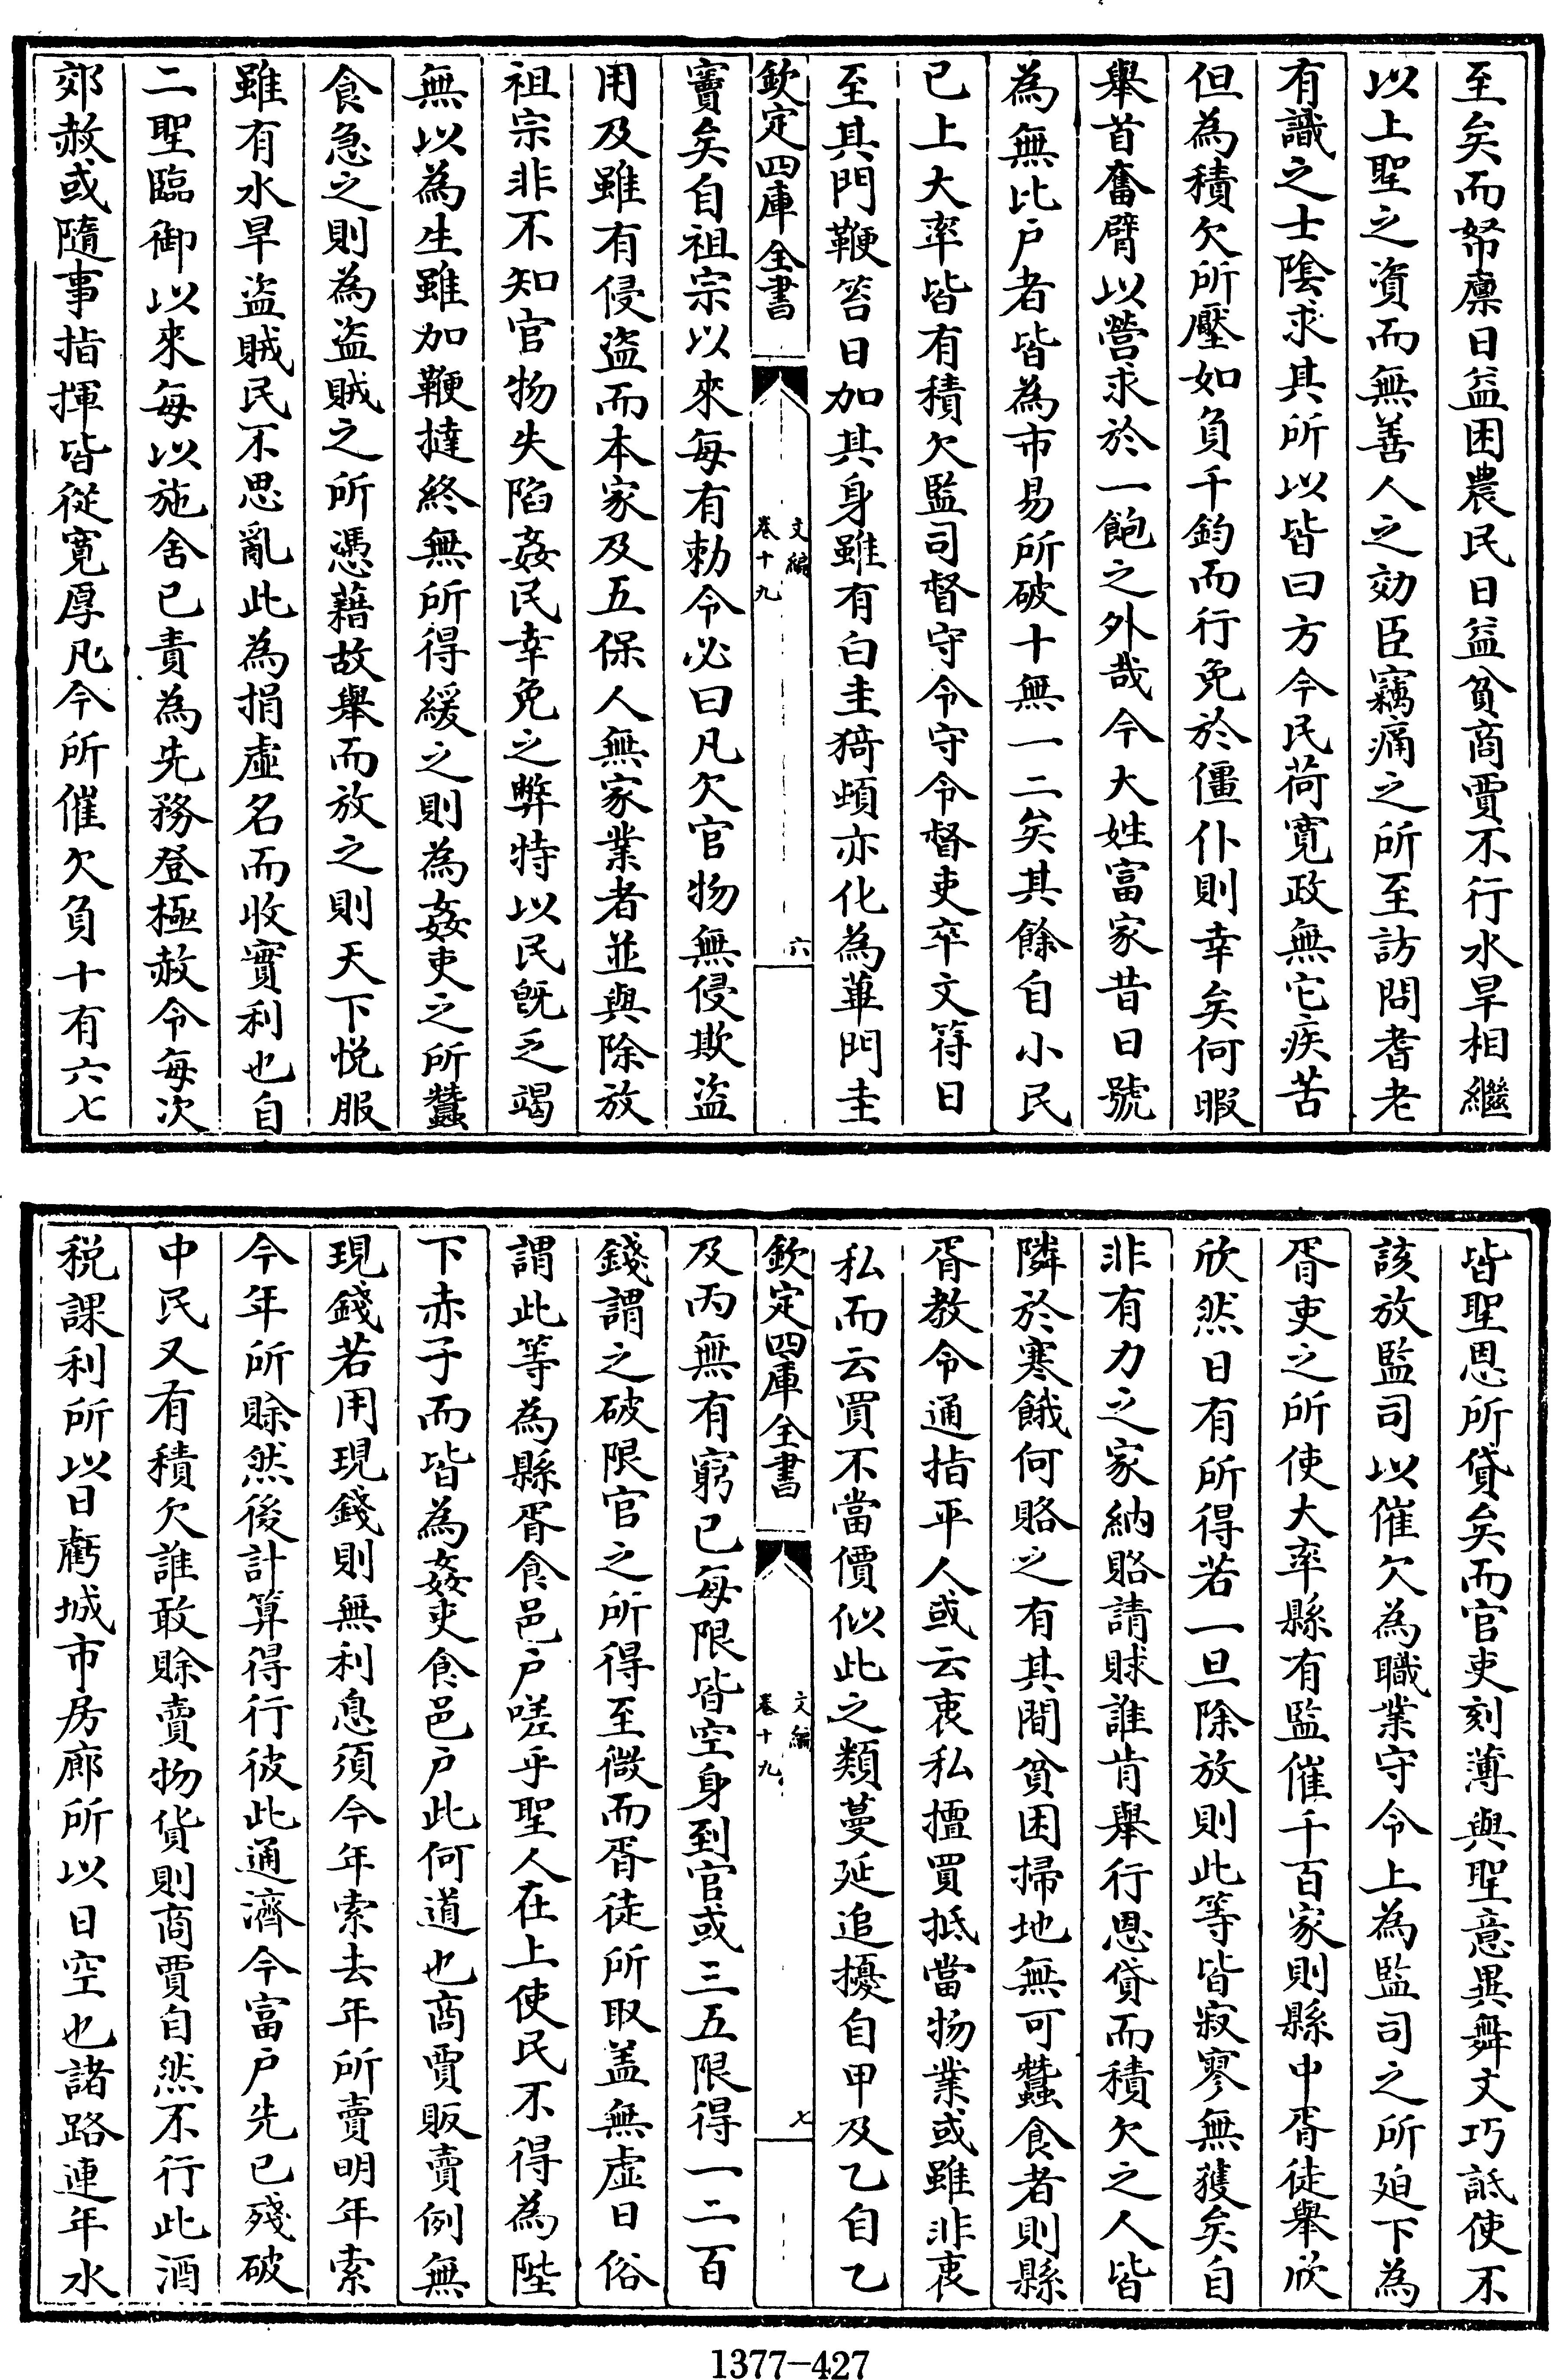 至矣而帑廪日益困農民日益貧商賈不行水旱相繼
以上聖之資而無善人之効臣竊痛之所至訪問耆老
有識之士陰求其所以皆曰方今民荷寛政無它疾苦
但為積欠所壓如負千鈞而行免於僵仆則幸矣何暇
舉首奮臂以營求於一飽之外哉今大姓富家昔日號
為無比户者皆為市易所破十無一二矣其餘自小民
已上大率皆有積欠監司督守令守令督吏卒文符日
至其門鞭笞日加其身雖有白圭猗頓亦化為蓽門圭
欽定四庫全書
文編
卷十九
六
竇矣自祖宗以來每有勅令必曰凡欠官物無侵欺盜
用及雖有侵盜而本家及五保人無家業者並與除放
祖宗非不知官物失陷姦民幸免之弊特以民既乏竭
無以為生雖加鞭撻終無所得緩之則為姦吏之所蠶
食急之則為盜賊之所憑藉故舉而放之則天下悦服
雖有水旱盜賊民不思亂此為捐虛名而收實利也自
二聖臨御以來每以施舍已責為先務登極赦令每次
郊赦或隨事指揮皆從寛厚凡今所催欠負十有六七
皆聖恩所貸矣而官吏刻薄與聖意異舞文巧詆使不
該放監司以催欠為職業守令上為監司之所廹下為
胥吏之所使大率縣有監催千百家則縣中胥徒舉欣
欣然日有所得若一旦除放則此等皆寂寥無獲矣自
非有力之家納賂請賕誰肯舉行恩貸而積欠之人皆
隣於寒餓何賂之有其間貧困掃地無可蠶食者則縣
胥教令通指平人或云衷私擅買抵當物業或雖非衷
私而云買不當價似此之類蔓延追擾自甲及乙自乙
欽定四庫全書
文編
卷十九
七
及丙無有窮已每限皆空身到官或三五限得一二百
錢謂之破限官之所得至微而胥徒所取盖無虚日俗
謂此等為縣胥食邑户嗟乎聖人在上使民不得為陛
下赤子而皆為姦吏食邑户此何道也商賈販賣例無
現錢若用現錢則無利息須今年索去年所賣明年索
今年所賒然後計算得行彼此通濟今富户先已殘破
中民又有積欠誰敢賒賣物貨則商賈自然不行此酒
税課利所以日虧城市房廊所以日空也諸路連年水
1377-427